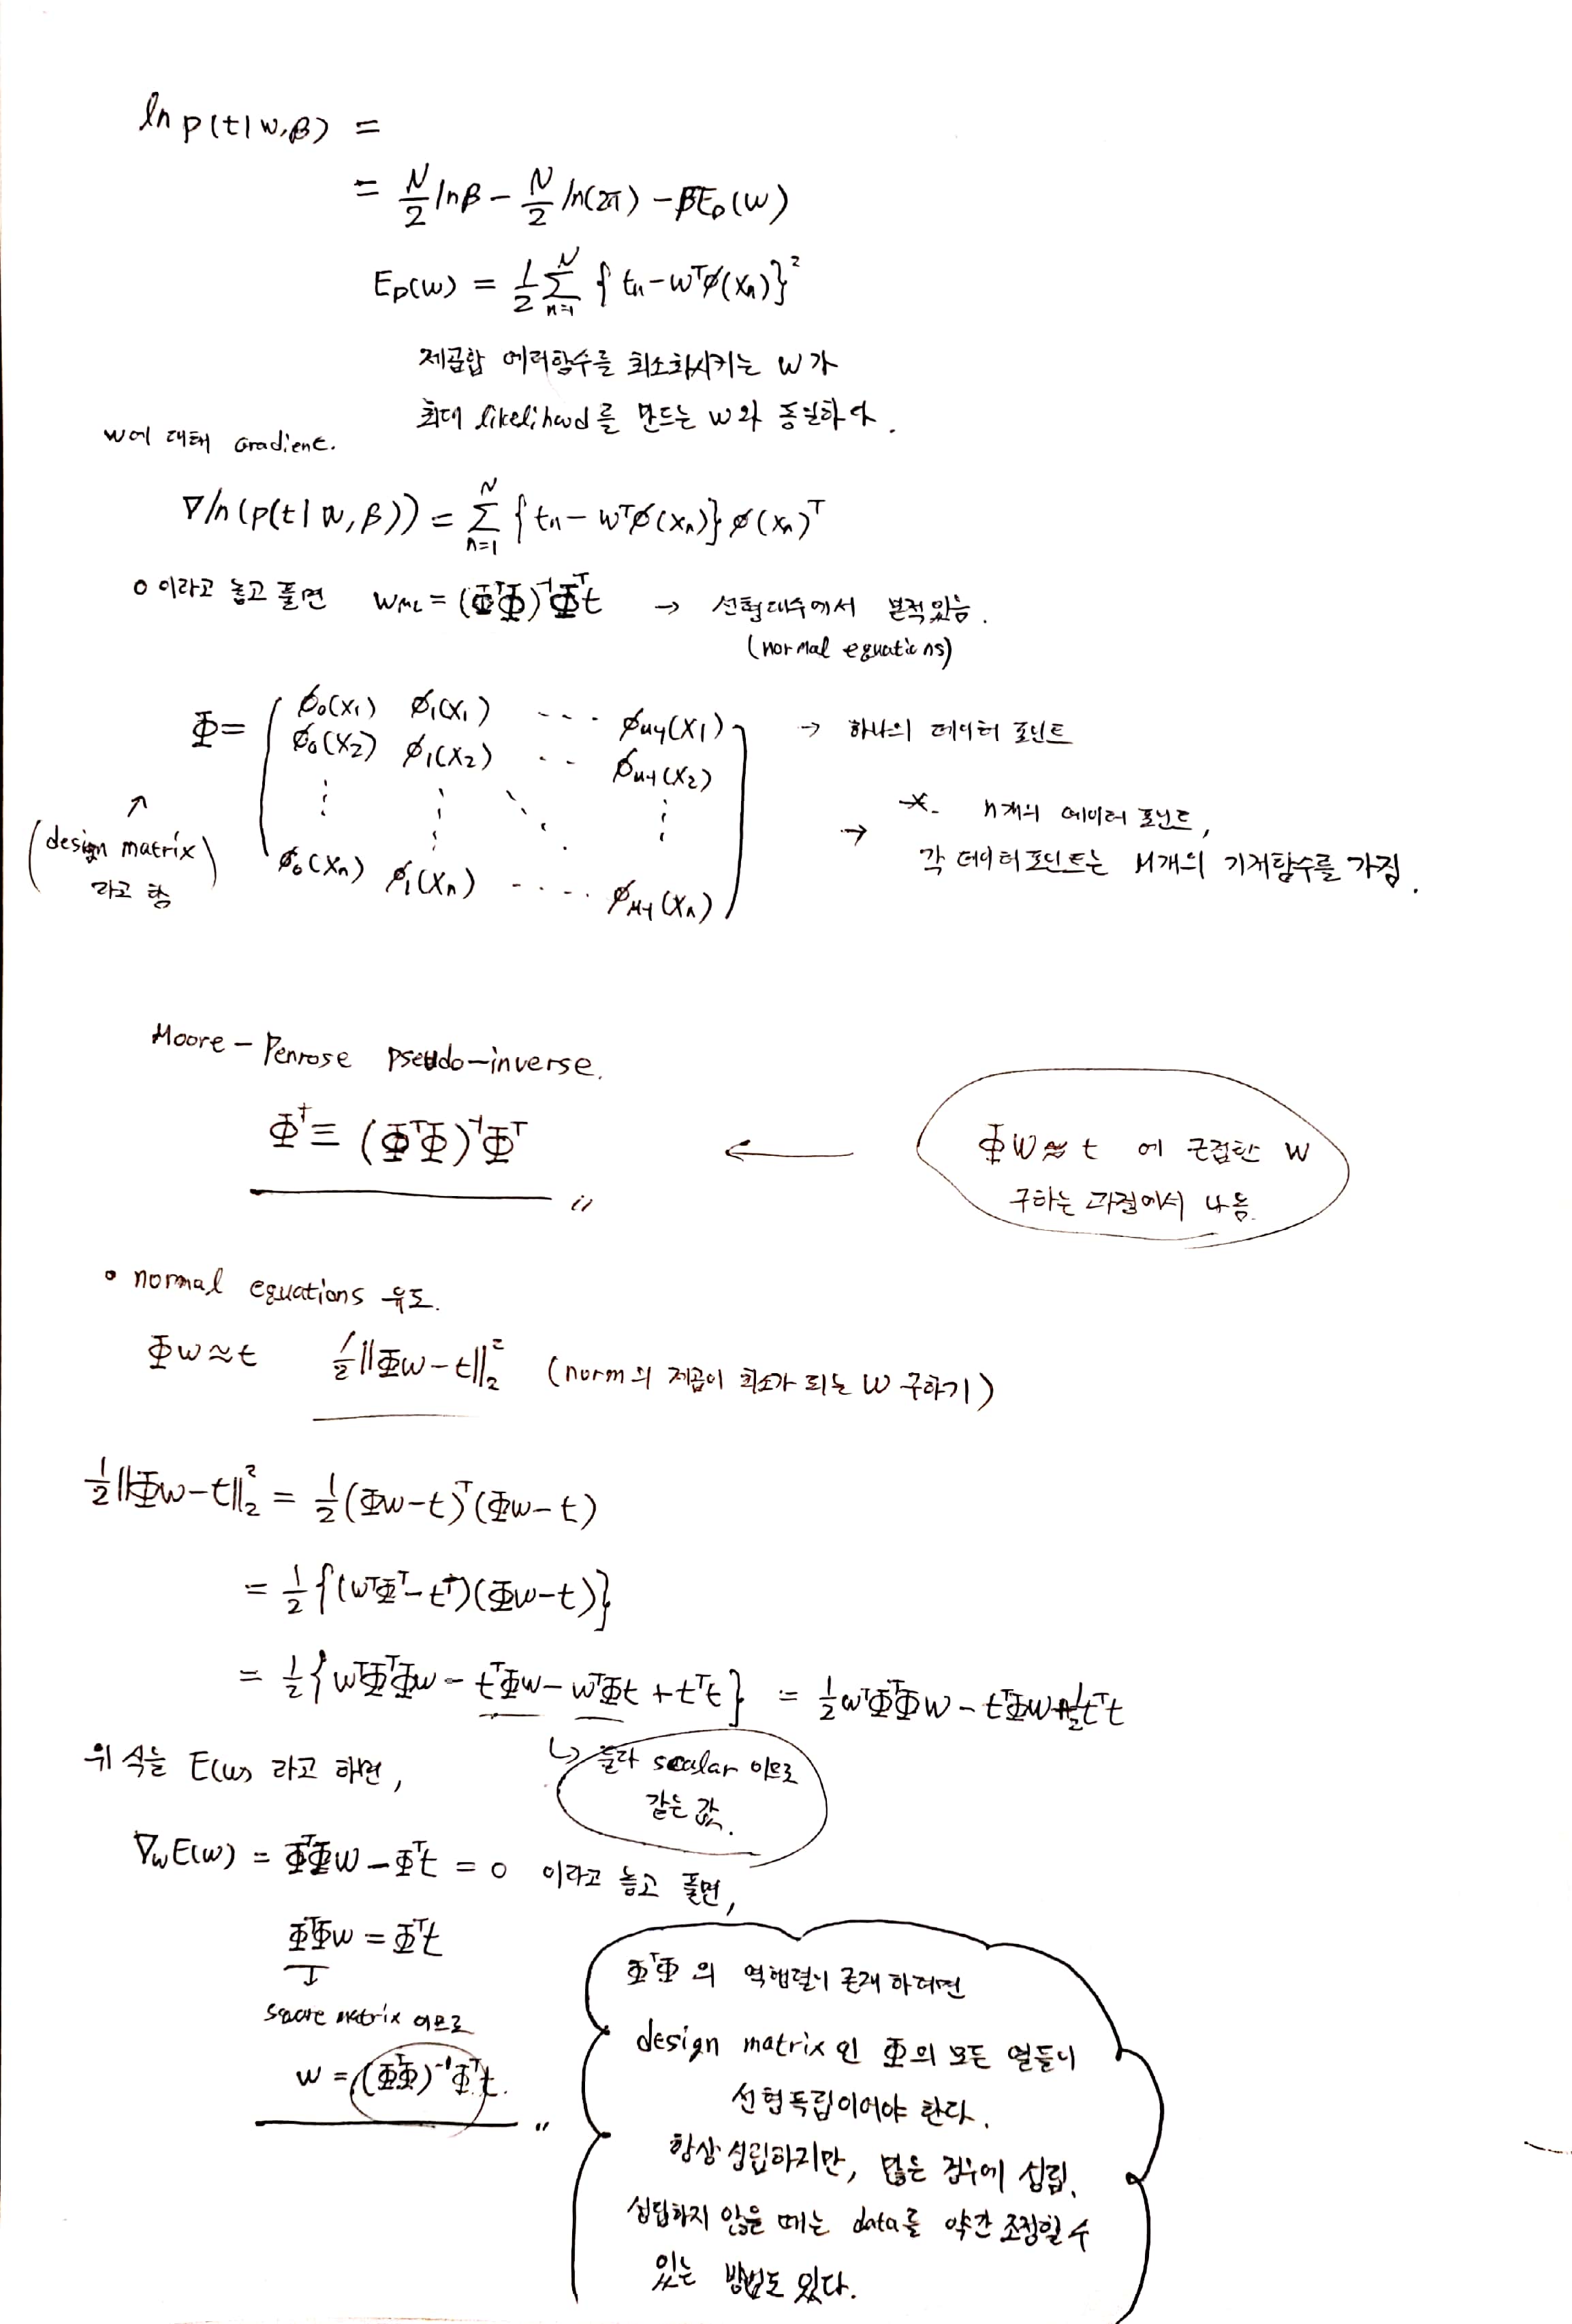 ln p(t|w,β) =
= N/2 lnβ - N/2 ln(2π) - βE_D(w)
E_D(w) = 1/2 Σ_{n=1}^{N} { t_n - w^Tφ(x_n)}^2
제곱합 에러함수를 최소화시키는 w가
최대 likelihood를 만드는 w와 동일하다.
w에 대해 Gradient.
∇ln(p(t|w,β)) = Σ_{n=1}^{N} {t_n - w^Tφ(x_n)} φ(x_n)^T
0 이라고 놓고 풀면 w_ML = (Φ^TΦ)^-1Φ^Tt → 선형대수에서 본적있음.
(normal equations)
Φ = ( φ_0(x_1) φ_1(x_1) --- φ_M-1(x_1) → 하나의 데이터 포인트
φ_0(x_2) φ_1(x_2) -- φ_M-1(x_2)
⋮ ⋮ ⋱ ⋮
φ_0(x_n) φ_1(x_n) ---- φ_M-1(x_n) )
↑
(design matrix
라고 함)
→ n개의 데이터 포인트,
각 데이터포인트는 M개의 기저함수를 가짐.
Moore - Penrose pseudo-inverse.
Φ^† ≡ (Φ^TΦ)^-1Φ^T ←
Φw ≈ t 에 근접한 w
구하는 과정에서 나옴.
• normal equations 유도.
Φw ≈ t 1/2||Φw - t||_2^2 (norm의 제곱이 최소가 되는 w 구하기)
1/2||Φw-t||_2^2 = 1/2(Φw-t)^T(Φw-t)
= 1/2{(w^TΦ^T-t^T)(Φw-t)}
= 1/2{w^TΦ^TΦw - t^TΦw - w^TΦt + t^Tt} = 1/2w^TΦ^TΦw - t^TΦw + 1/2t^Tt
↳ 둘다 scalar 이므로
같은 값.
위 식을 E(w) 라고 하면,
∇_wE(w) = Φ^TΦw - Φ^Tt = 0 이라고 놓고 풀면,
Φ^TΦw = Φ^Tt
square matrix 이므로
w = (Φ^TΦ)^-1Φ^Tt.
Φ^TΦ 의 역행렬이 존재 하려면
design matrix인 Φ의 모든 열들이
선형독립이어야 한다.
항상 성립하지만, 많은 경우에 성립.
성립하지 않을 때는 data를 약간 조정할 수
있는 방법도 있다.